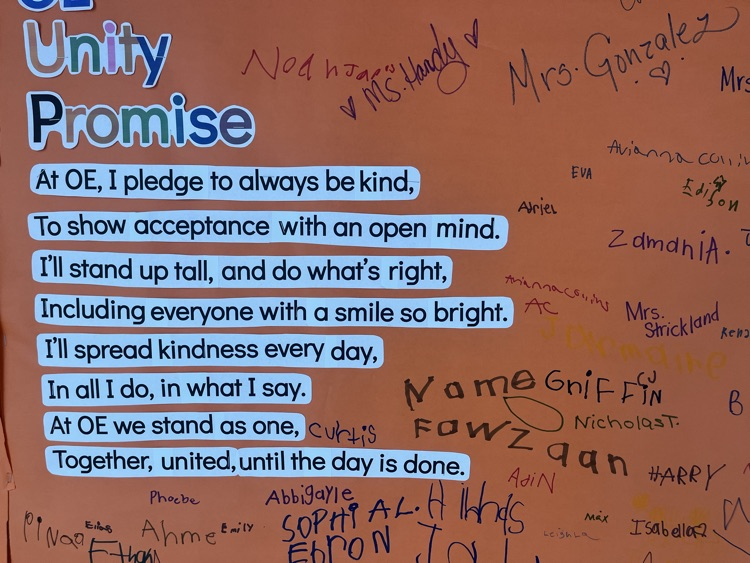 OE
Unity
Promise
At OE, I pledge to always be kind,
To show acceptance with an open mind.
I'll stand up tall, and do what's right,
Including everyone with a smile so bright.
I'll spread kindness every day,
In all I do, in what I say.
At OE we stand as one,
Together, united, until the day is done.
Ms. Handy
Mrs. Gonzalez
Mrs
EVA
Adriel
Edison
ZamaniA.
Ariannacollins
AC
Mrs.
Strickland
Name
GriFFiN
CJ
NicholasT.
Fawzaan
curtis
AdiN
HARRY
Phoebe
Abbigayle
Elias
Ahme
Emily
SOPHI AL.
EbRON
Ethan
Max
Isabella